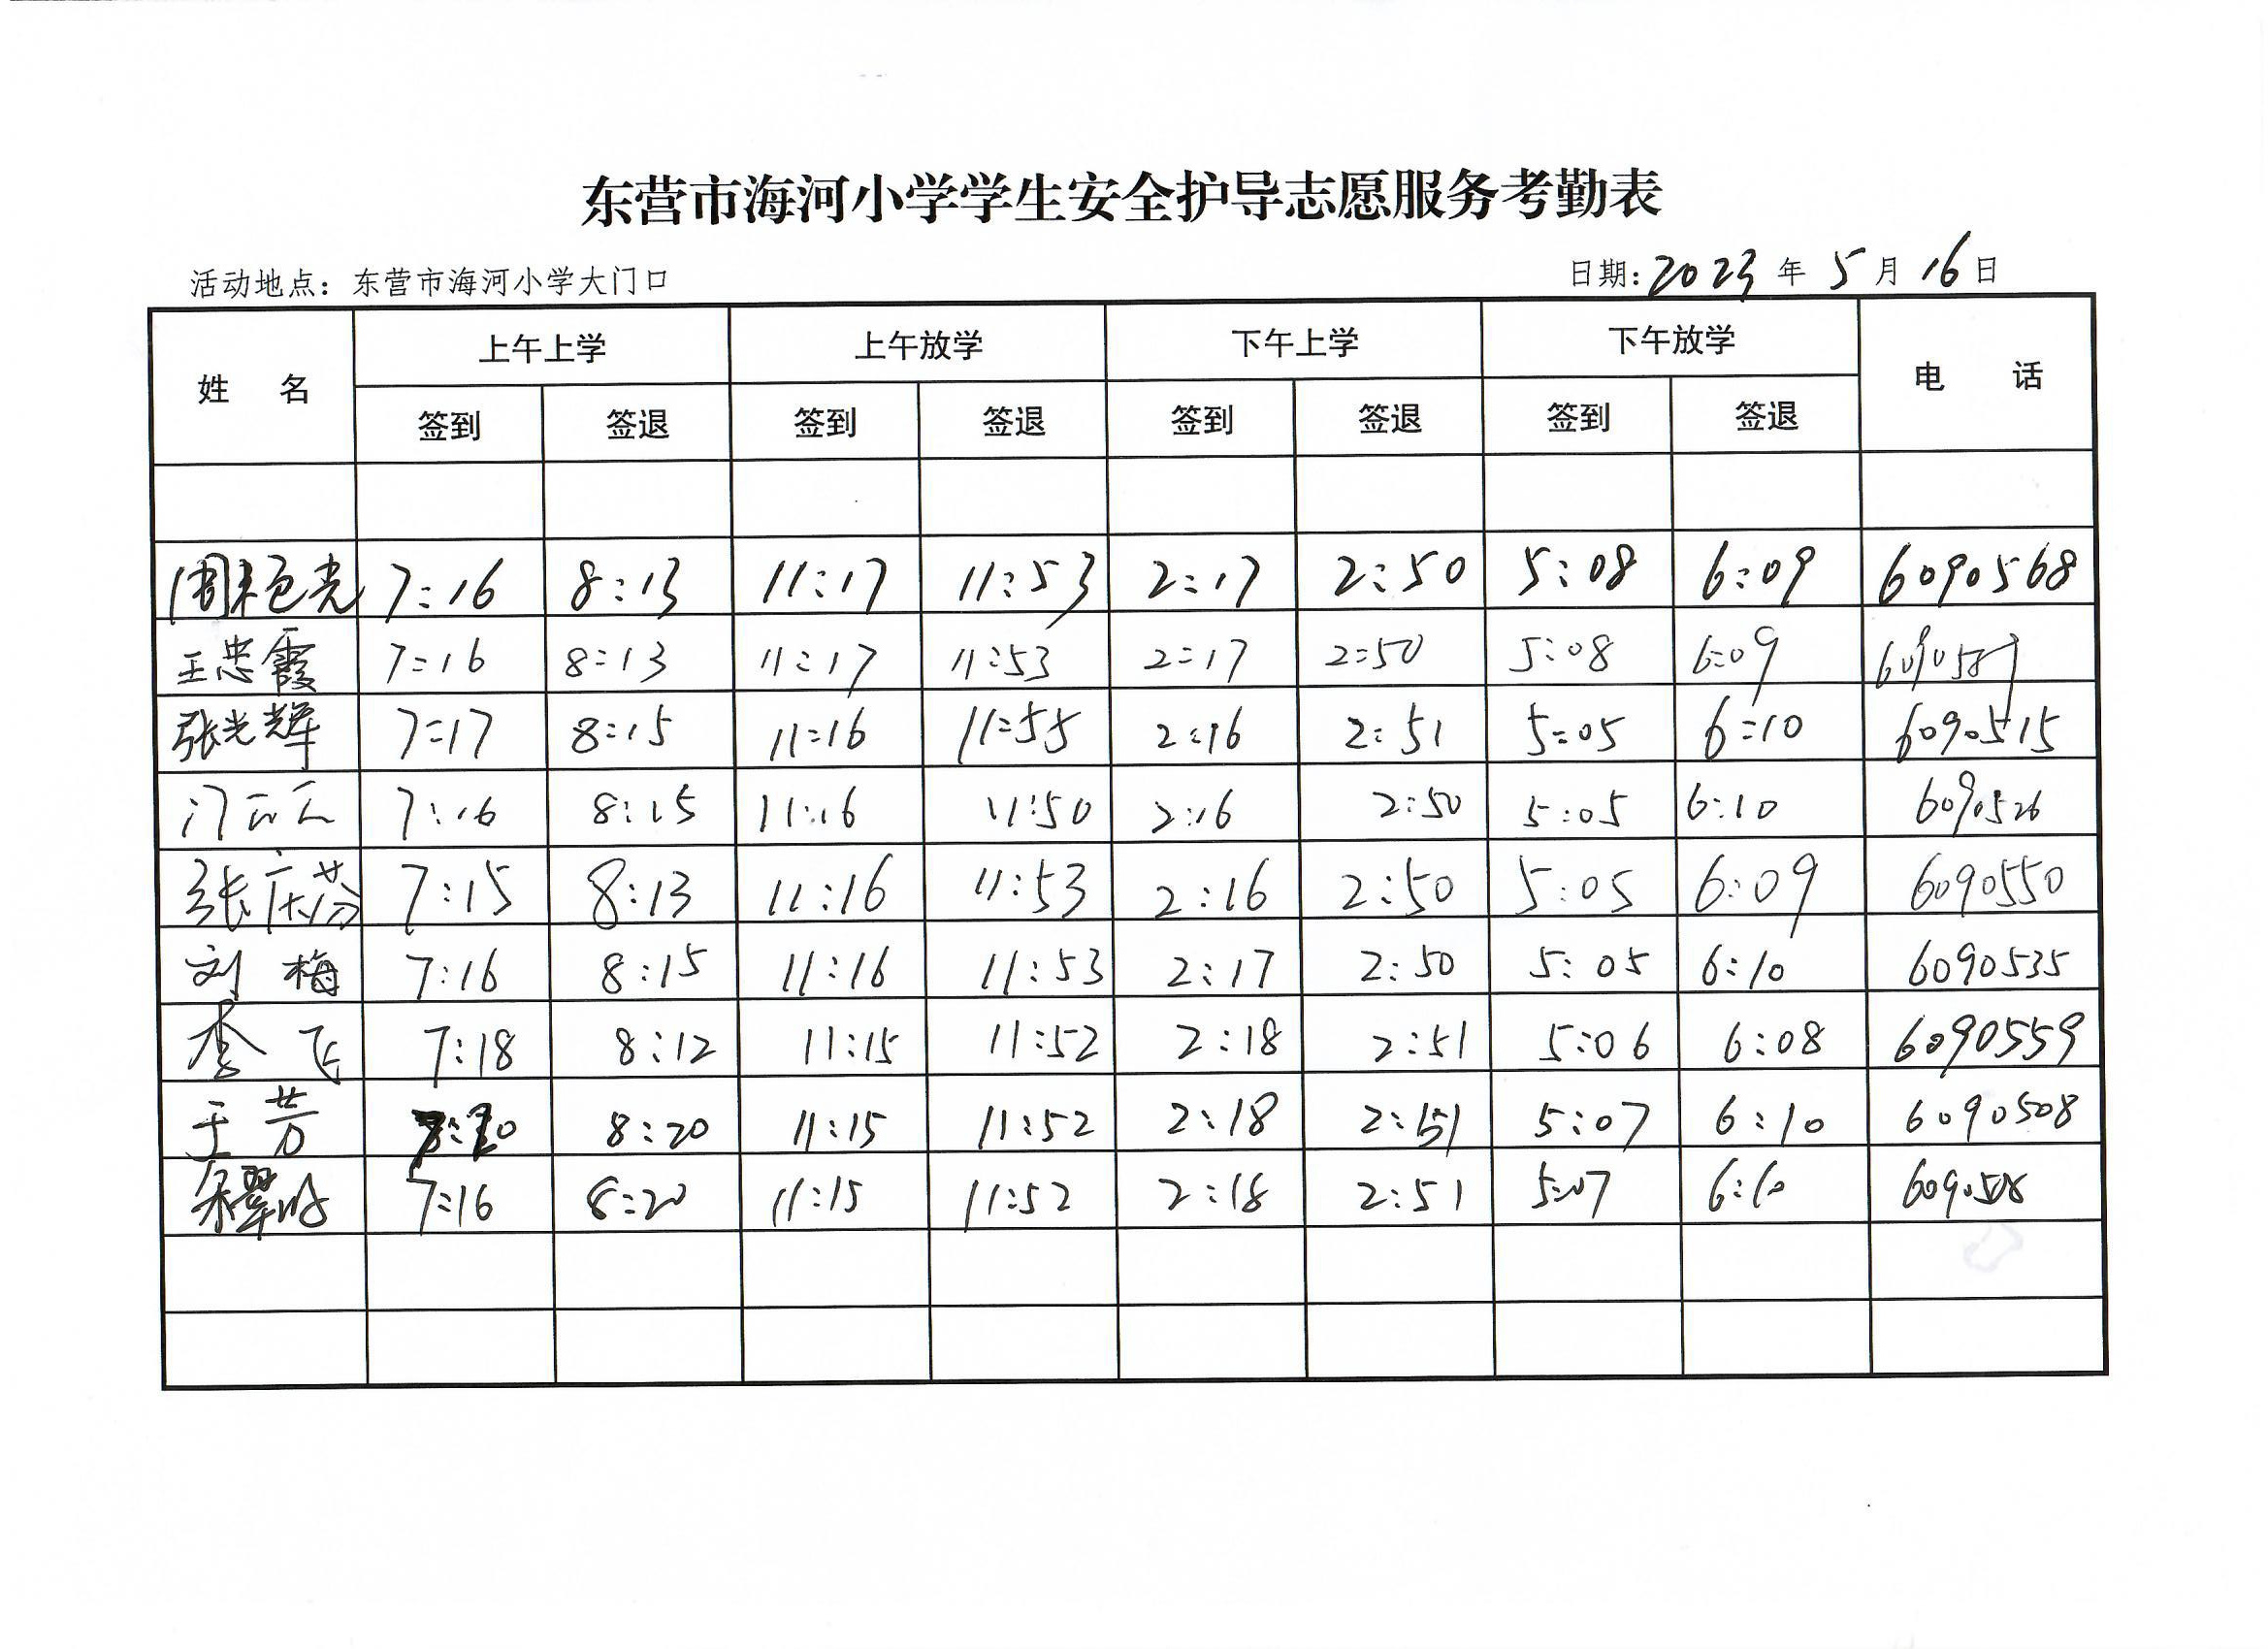 东营市海河小学学生安全护导志愿服务考勤表
活动地点：东营市海河小学大门口 日期：2023年5月16日
姓 名 上午上学 上午放学 下午上学 下午放学 电 话
签到 签退 签到 签退 签到 签退 签到 签退
周艳光 7:16 8:13 11:17 11:53 2:17 2:50 5:08 6:09 6090568
王忠霞 7:16 8:13 11:17 11:53 2:17 2:50 5:08 6:09
张光辉 7:17 8:15 11:16 11:55 2:16 2:51 5:05 6:10 6090515
7:16 8:15 11:16 11:50 2:16 2:50 5:05 6:10 6090526
张庆芬 7:15 8:13 11:16 11:53 2:16 2:50 5:05 6:09 6090550
刘梅 7:16 8:15 11:16 11:53 2:17 2:50 5:05 6:10 6090535
李飞 7:18 8:12 11:15 11:52 2:18 2:51 5:06 6:08 6090559
王芳 8:20 11:15 11:52 2:18 2:51 5:07 6:10 6090508
7:16 8:20 11:15 11:52 2:18 2:51 5:07 6:10